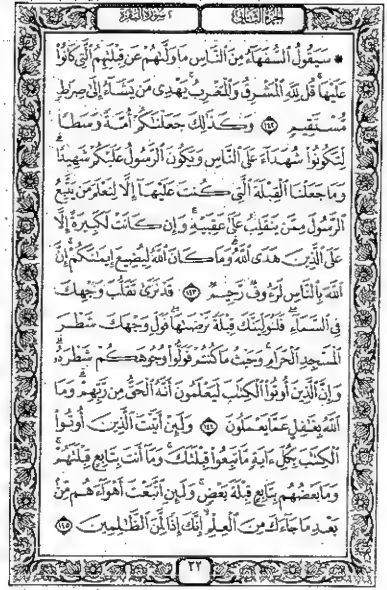 الجزء الثاني
سورة البقرة ٢
* سَيَقُولُ السُّفَهَاءُ مِنَ النَّاسِ مَا وَلَّىٰهُمْ عَن قِبْلَتِهِمُ الَّتِي كَانُوا
عَلَيْهَا قُل لِّلَّهِ الْمَشْرِقُ وَالْمَغْرِبُ يَهْدِي مَن يَشَاءُ إِلَىٰ صِرَٰطٍ
مُّسْتَقِيمٍ ١٤٢ وَكَذَٰلِكَ جَعَلْنَٰكُمْ أُمَّةً وَسَطًا
لِّتَكُونُوا شُهَدَاءَ عَلَى النَّاسِ وَيَكُونَ الرَّسُولُ عَلَيْكُمْ شَهِيدًا
وَمَا جَعَلْنَا الْقِبْلَةَ الَّتِي كُنتَ عَلَيْهَا إِلَّا لِنَعْلَمَ مَن يَتَّبِعُ
الرَّسُولَ مِمَّن يَنقَلِبُ عَلَىٰ عَقِبَيْهِ وَإِن كَانَتْ لَكَبِيرَةً إِلَّا
عَلَى الَّذِينَ هَدَى اللَّهُ وَمَا كَانَ اللَّهُ لِيُضِيعَ إِيمَٰنَكُمْ إِنَّ
اللَّهَ بِالنَّاسِ لَرَءُوفٌ رَّحِيمٌ ١٤٣ قَدْ نَرَىٰ تَقَلُّبَ وَجْهِكَ
فِي السَّمَاءِ فَلَنُوَلِّيَنَّكَ قِبْلَةً تَرْضَىٰهَا فَوَلِّ وَجْهَكَ شَطْرَ
الْمَسْجِدِ الْحَرَامِ وَحَيْثُ مَا كُنتُمْ فَوَلُّوا وُجُوهَكُمْ شَطْرَهُ
وَإِنَّ الَّذِينَ أُوتُوا الْكِتَٰبَ لَيَعْلَمُونَ أَنَّهُ الْحَقُّ مِن رَّبِّهِمْ وَمَا
اللَّهُ بِغَٰفِلٍ عَمَّا يَعْمَلُونَ ١٤٤ وَلَئِنْ أَتَيْتَ الَّذِينَ أُوتُوا
الْكِتَٰبَ بِكُلِّ ءَايَةٍ مَّا تَبِعُوا قِبْلَتَكَ وَمَا أَنتَ بِتَابِعٍ قِبْلَتَهُمْ
وَمَا بَعْضُهُم بِتَابِعٍ قِبْلَةَ بَعْضٍ وَلَئِنِ اتَّبَعْتَ أَهْوَاءَهُم مِّن
بَعْدِ مَا جَاءَكَ مِنَ الْعِلْمِ إِنَّكَ إِذًا لَّمِنَ الظَّٰلِمِينَ ١٤٥
٢٢